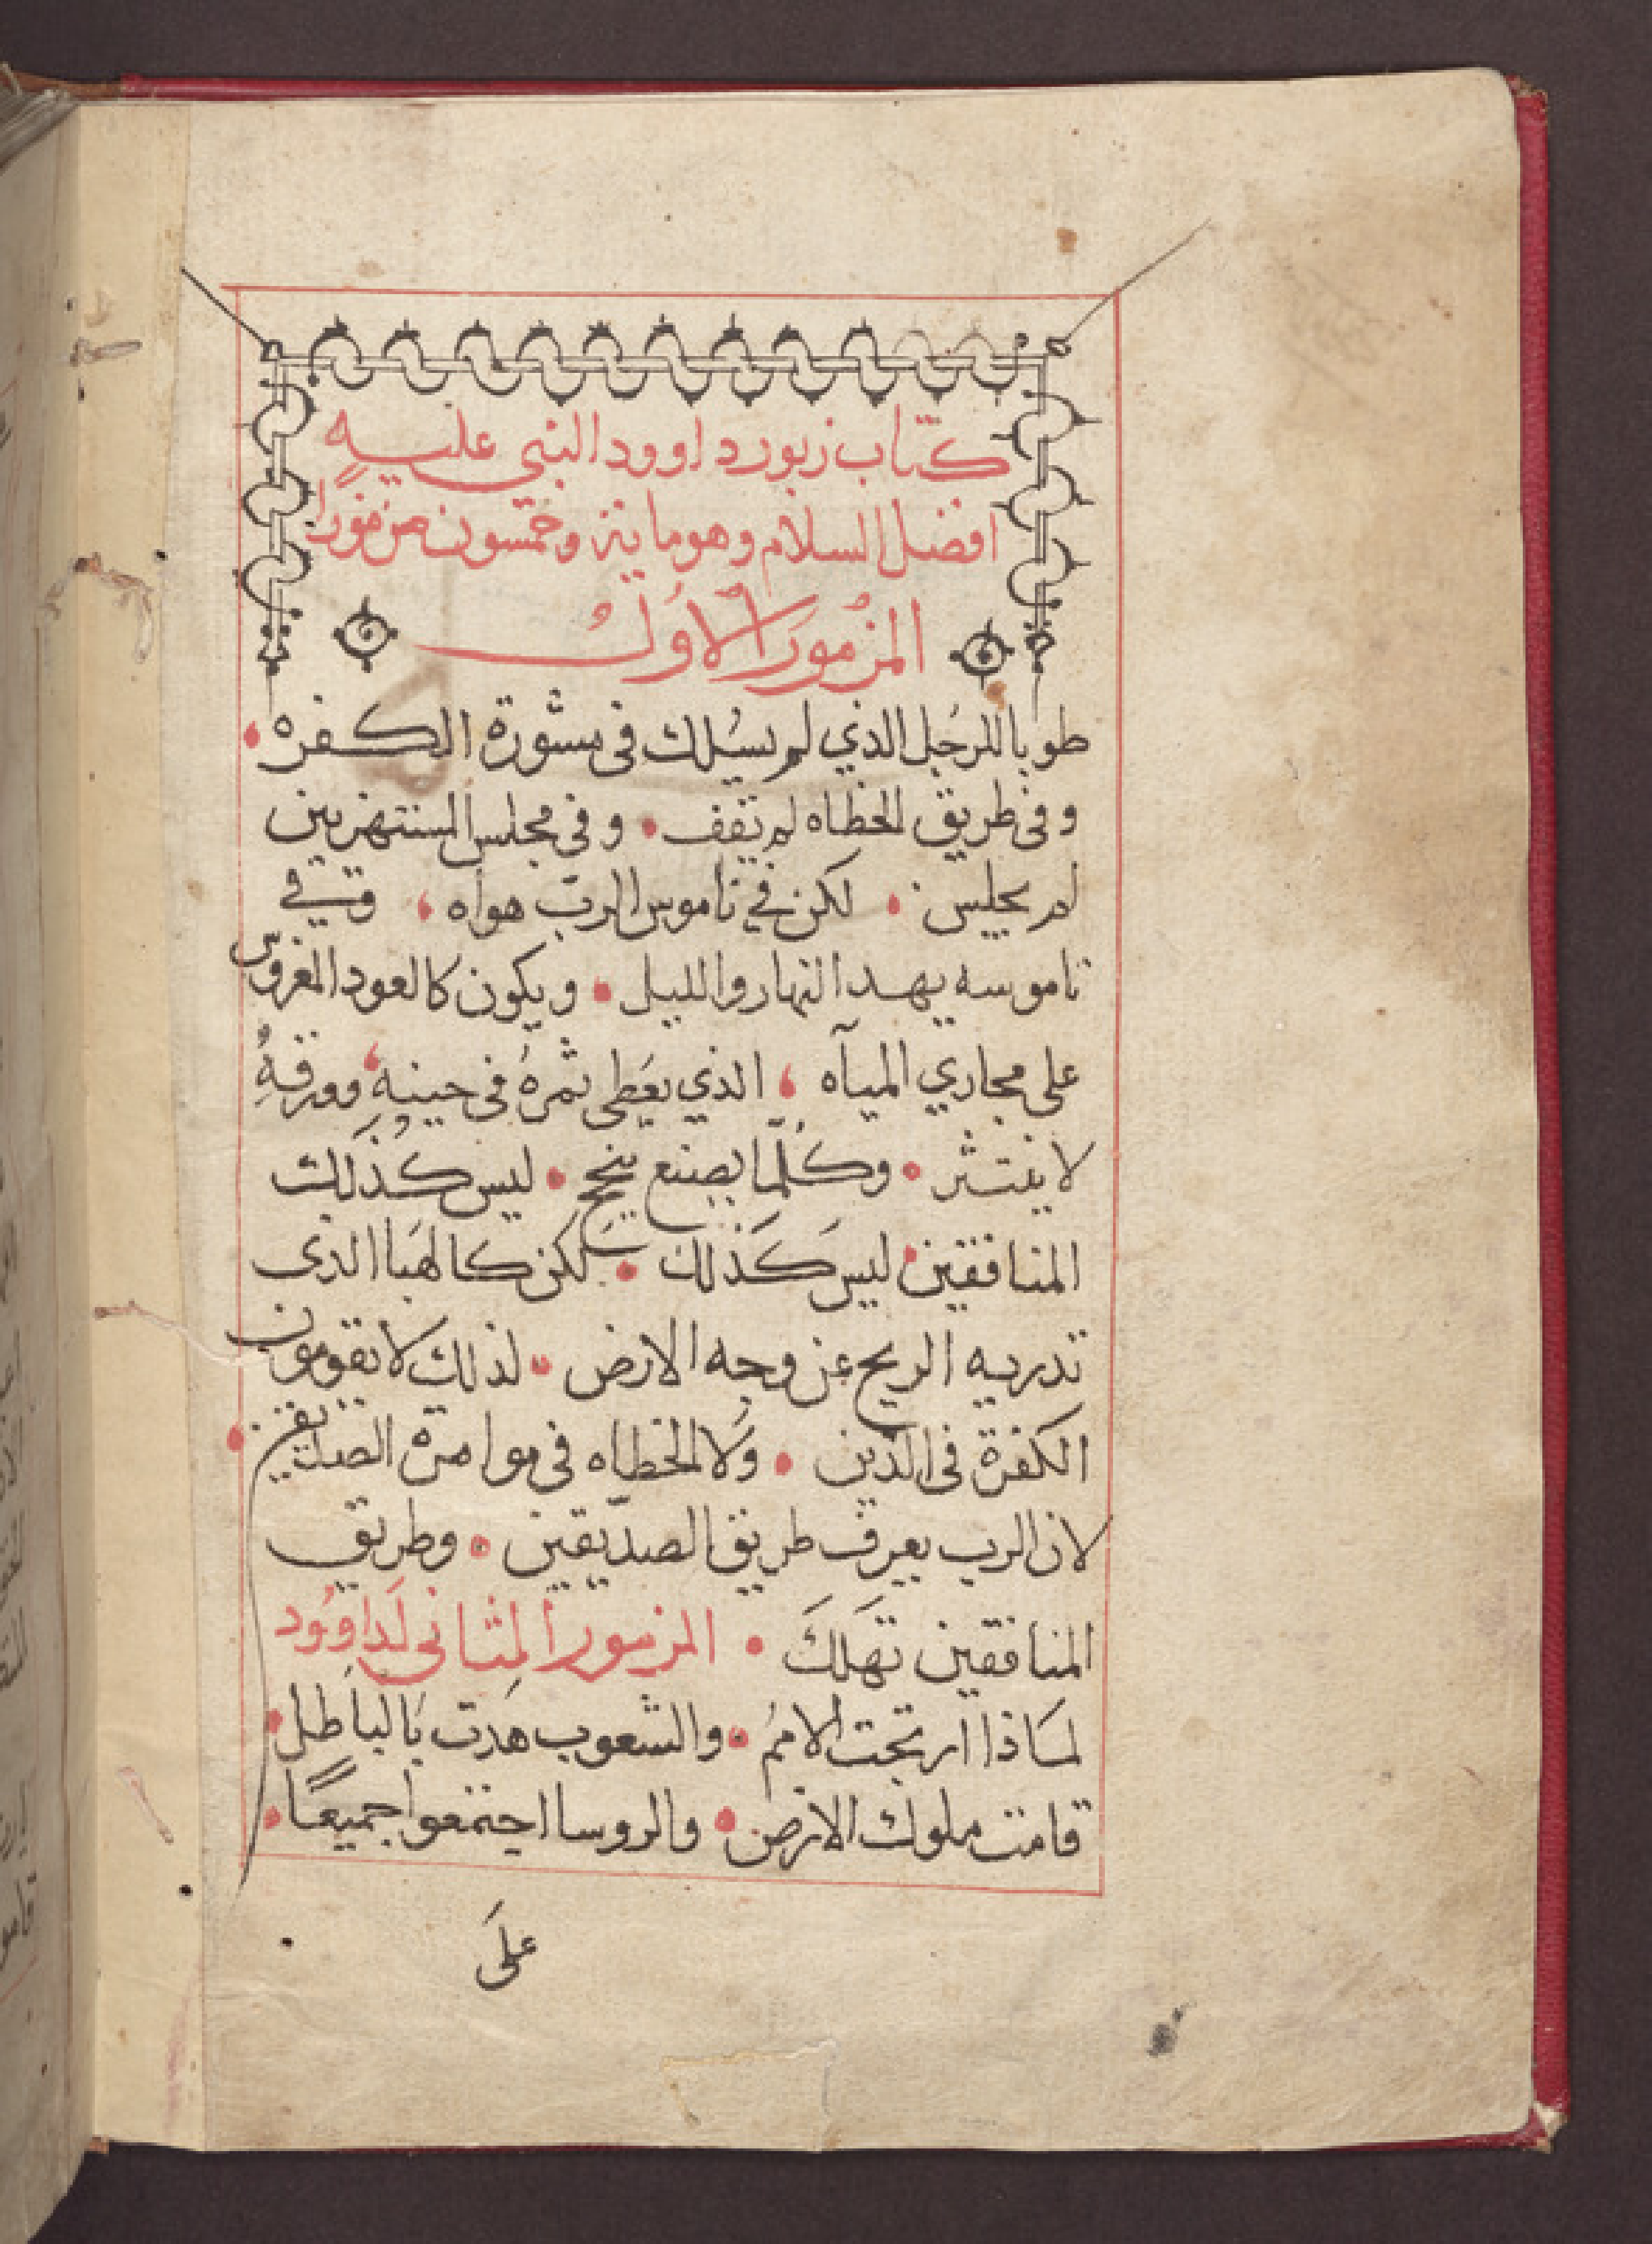 كتاب زبور داوود النبي عليه
افضل السلام وهو ماية وخمسون مزمورا
المزمور الاول
طوبا للرجل الذي لم يسلك فى مشورة الكفره
وفى طريق الخطاه لم يقف • وفي مجلس المستهزيين
لم يجلس • لكن في ناموس الرب هواه ، وفي
ناموسه يهد النهار والليل • ويكون كالعود المغروس
على مجاري المياه ، الذي يعطى ثمره فى حينه ، وورقه
لا ينتثر • وكلما يصنع ينجح • ليس كذلك
المنافقين • ليس كذلك • لكن كالهبا الذى
تدريه الريح عن وجه الارض • لذلك لا يقومون
الكفرة فى الدين • ولا الخطاه فى موامرة الصديقين •
لان الرب يعرف طريق الصديقين • وطريق
المنافقين تهلك • المزمور الثانى لداوود
لماذا ارتجت الامم • والشعوب هدت بالباطل •
قامت ملوك الارض • والروسا اجتمعوا جميعًا •
على